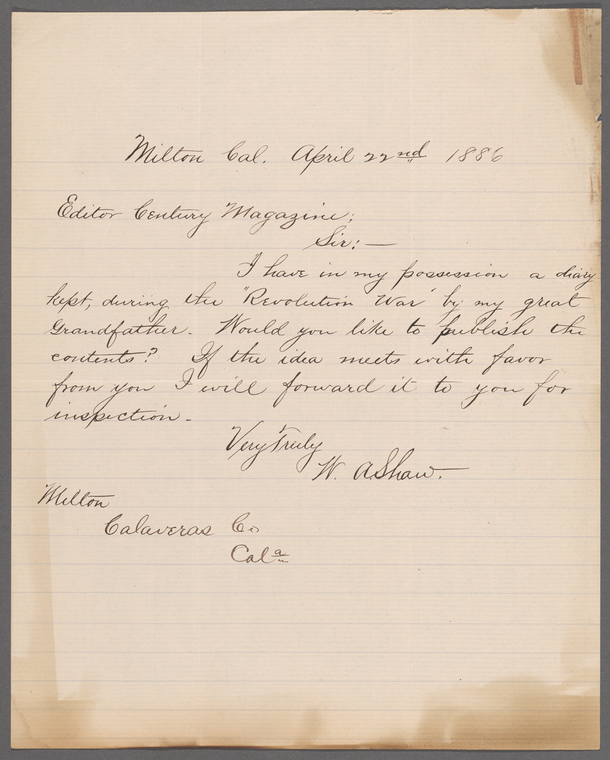 Milton Cal. April 22nd 1886
Editor Century Magazine;
Sir:—
I have in my possession a diary
kept, during the "Revolution War" by my great
Grandfather. Would you like to publish the
contents? If the idea meets with favor
from you I will forward it to you for
inspection.
Very Truly
W. A Shaw.
Milton
Calaveras Co
Cala